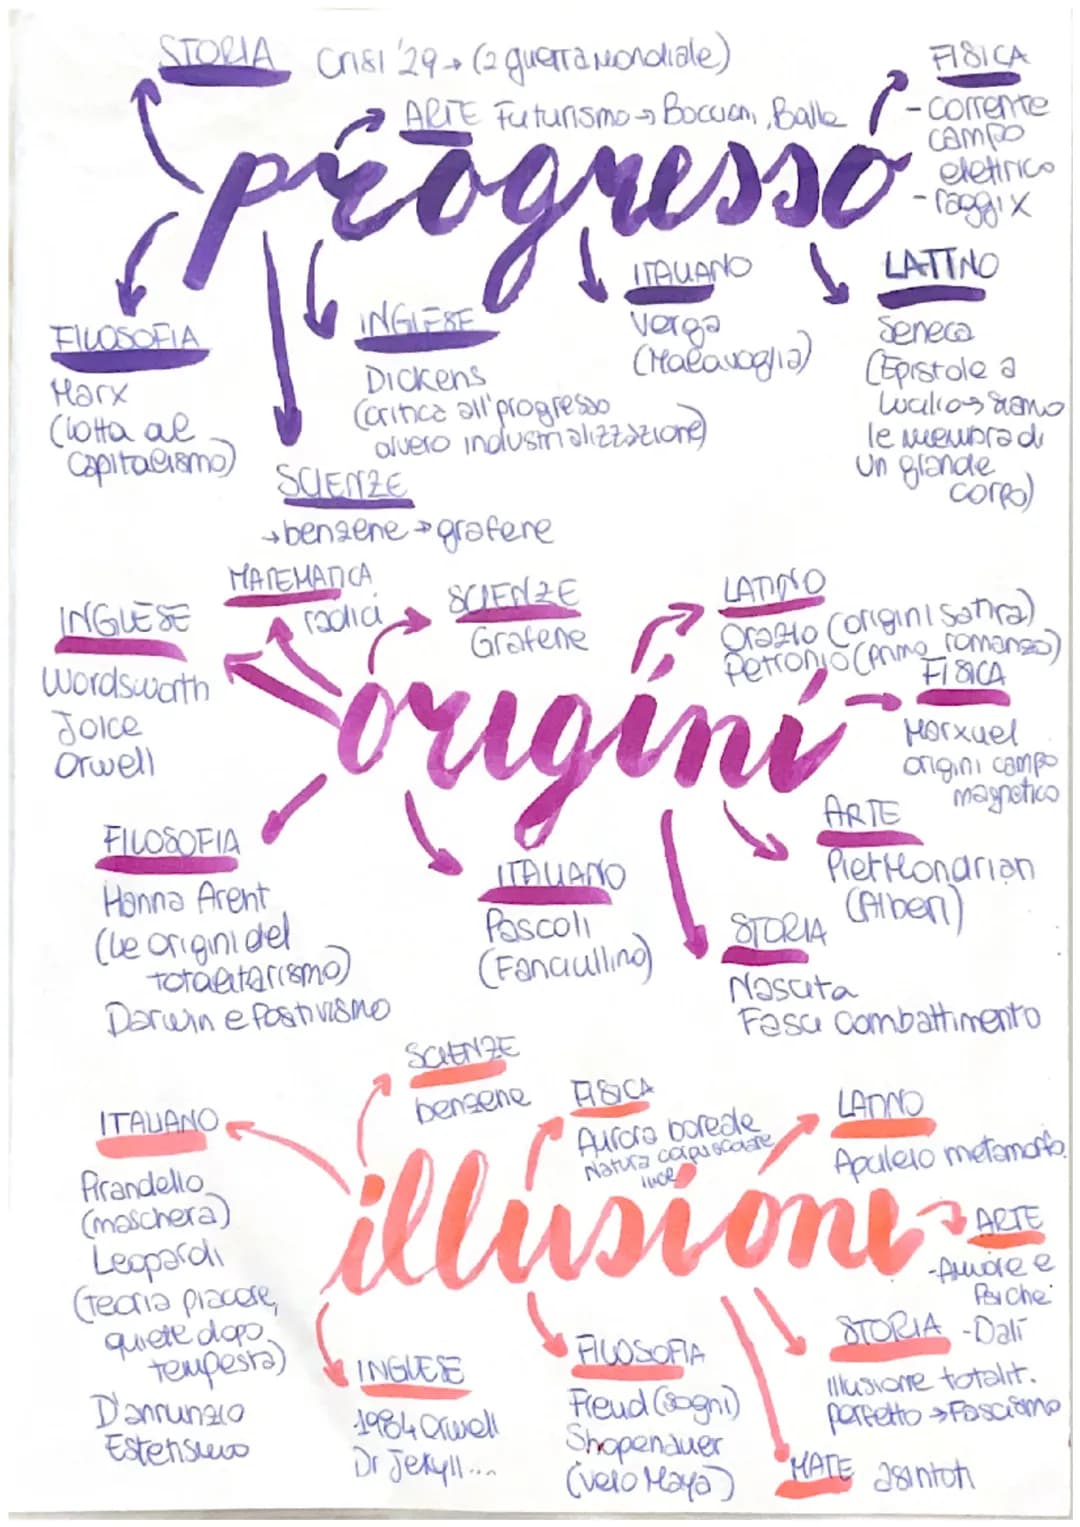 STORIA Crisi '29 → (2 guerra Mondiale)
ARTE Futurismo → Boccioni, Balla
FISICA
- corrente
campo
elettrico
- raggi x
progresso
FILOSOFIA
Marx
(lotta al
capitalismo)
SCIENZE
→ benzene → grafene
INGLESE
Dickens
(critica all'progresso
ovvero industrializzazione)
ITALIANO
Verga
(Malavoglia)
LATINO
Seneca
(Epistole a
Lucilio → siamo
le membra di
un grande
corpo)
INGLESE
Wordsworth
Joice
Orwell
MATEMATICA
radici
SCIENZE
Grafene
LATINO
Orazio (origini satira)
Petronio (primo romanzo)
FISICA
Marxuel
origini campo
magnetico
origini
FILOSOFIA
Hanna Arent
(Le origini del
totalitarismo)
Darwin e Positivismo
ITALIANO
Pascoli
(Fanciullino)
STORIA
Nascita
Fasci combattimento
ARTE
Piet Mondrian
(Alberi)
ITALIANO
Pirandello
(maschera)
Leopardi
(teoria piacere,
quiete dopo
tempesta)
D'annunzio
Estetismo
SCIENZE
benzene
FISICA
Aurora boreale
Natura corpuscolare
luce
LATINO
Apuleio metamorfo.
illusione
ARTE
- Amore e
Psiche
- Dalì
INGLESE
1984 Orwell
Dr Jekyll...
FILOSOFIA
Freud (sogni)
Shopenauer
(velo Maya)
STORIA
Illusione totalit.
perfetto → Fascismo
MATE asintoti